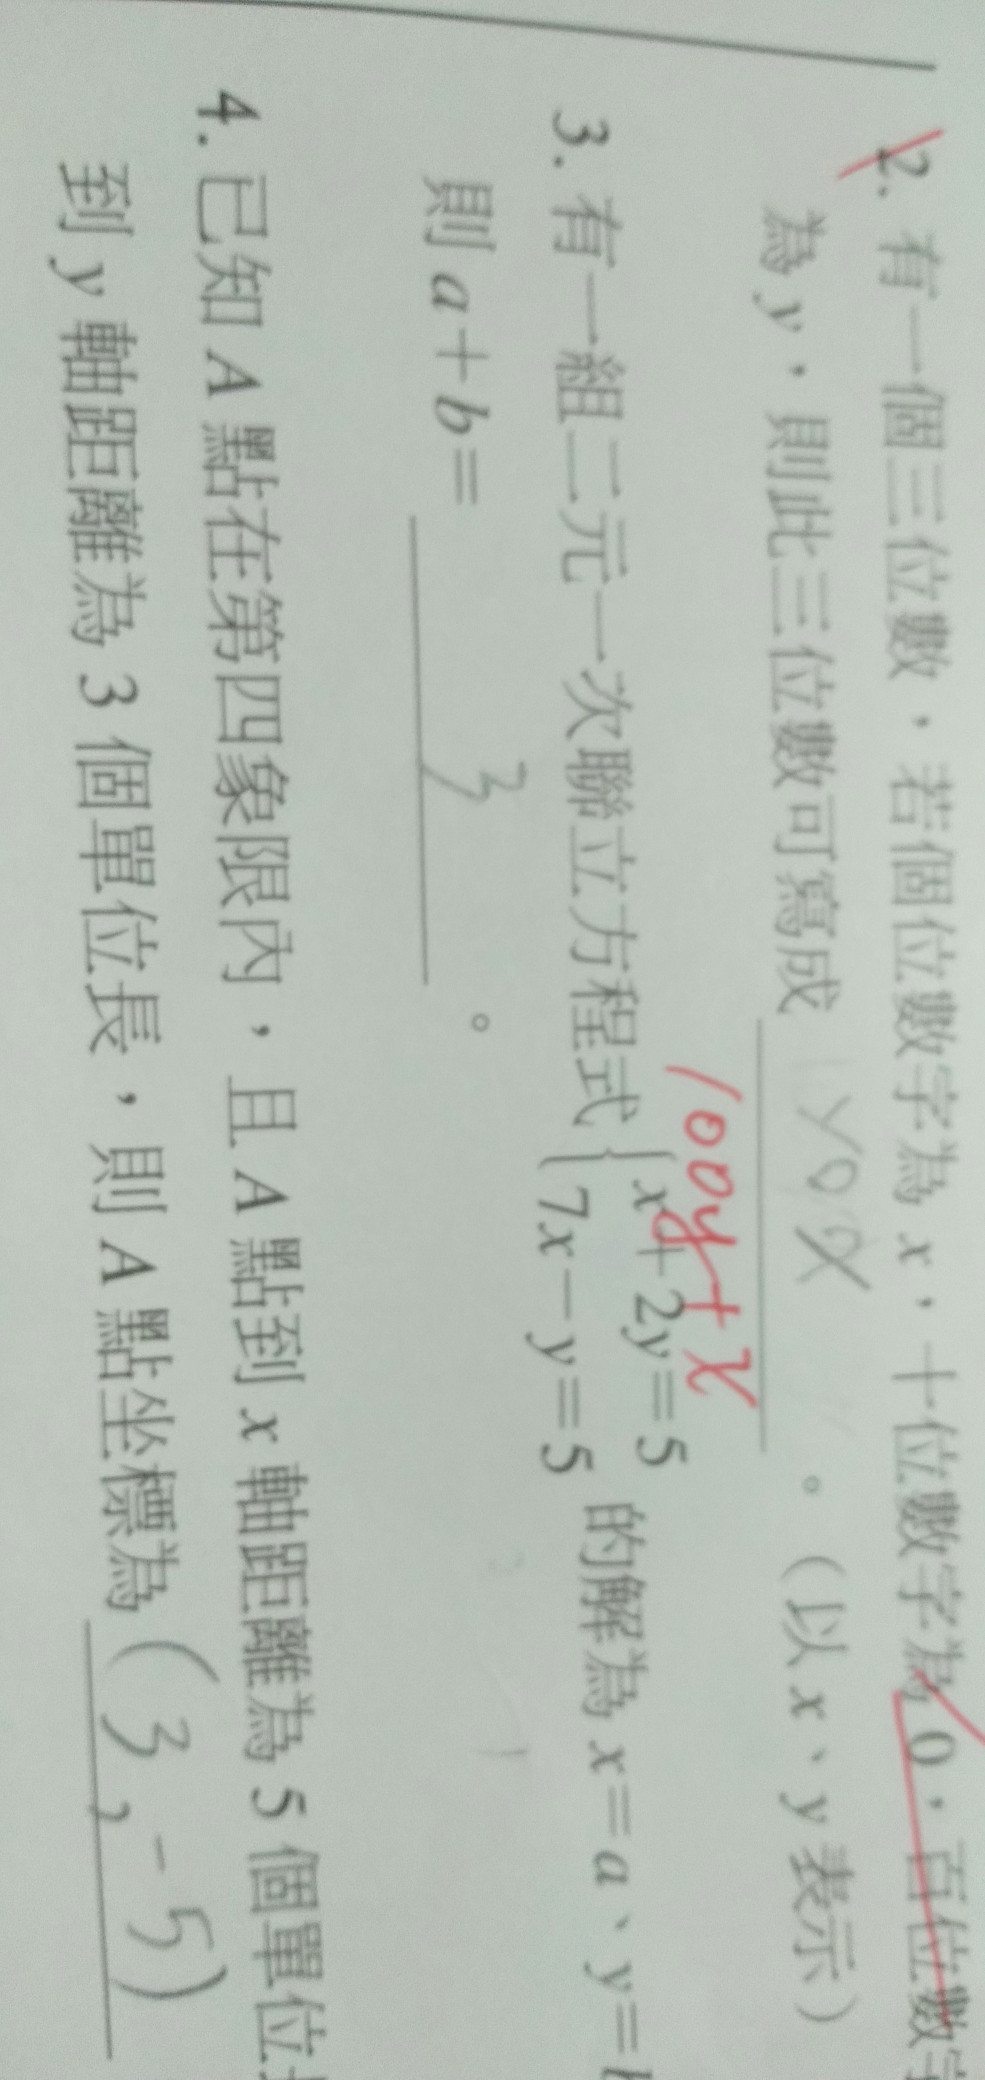 2. 有一個三位數，若個位數字為 x，十位數字為 0，百位數字
為 y，則此三位數可寫成 y0x 。（以 x、y 表示）
100y+x
3. 有一組二元一次聯立方程式 { x+2y=5
7x−y=5 的解為 x=a、y=b
則 a+b= 3 。
4. 已知 A 點在第四象限內，且 A 點到 x 軸距離為 5 個單位
到 y 軸距離為 3 個單位長，則 A 點坐標為 (3,-5)